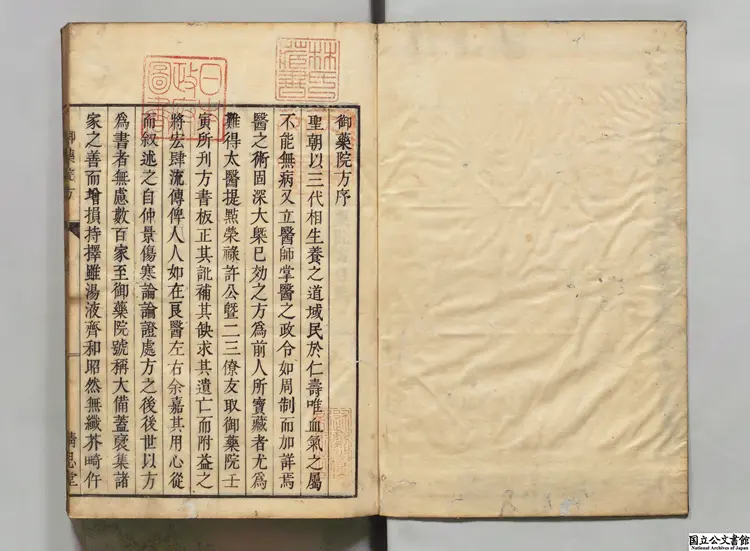 御藥院方序
聖朝以三代相生養之道域民於仁壽唯血氣之屬
不能無病又立醫師掌醫之政令如周制而加詳焉
醫之術固深大槩已効之方為前人所寶藏者尤為
難得太醫提㸃榮祿許公曁二三僚友取御藥院壬
寅所刋方書板正其訛補其缺求其遺亡而附益之
將宏肆流傳俾人人如在良醫左右余嘉其用心從
而叙述之自仲景傷寒論論證處方之後後世以方
為書者無慮數百家至御藥院號稱大備蓋裒集諸
家之善而增損持擇雖湯液齊和昭然無纖芥畸仵
御藥院方
精思堂
日本
政府
圖書
林氏
藏書
国立公文書館
National Archives of Japan